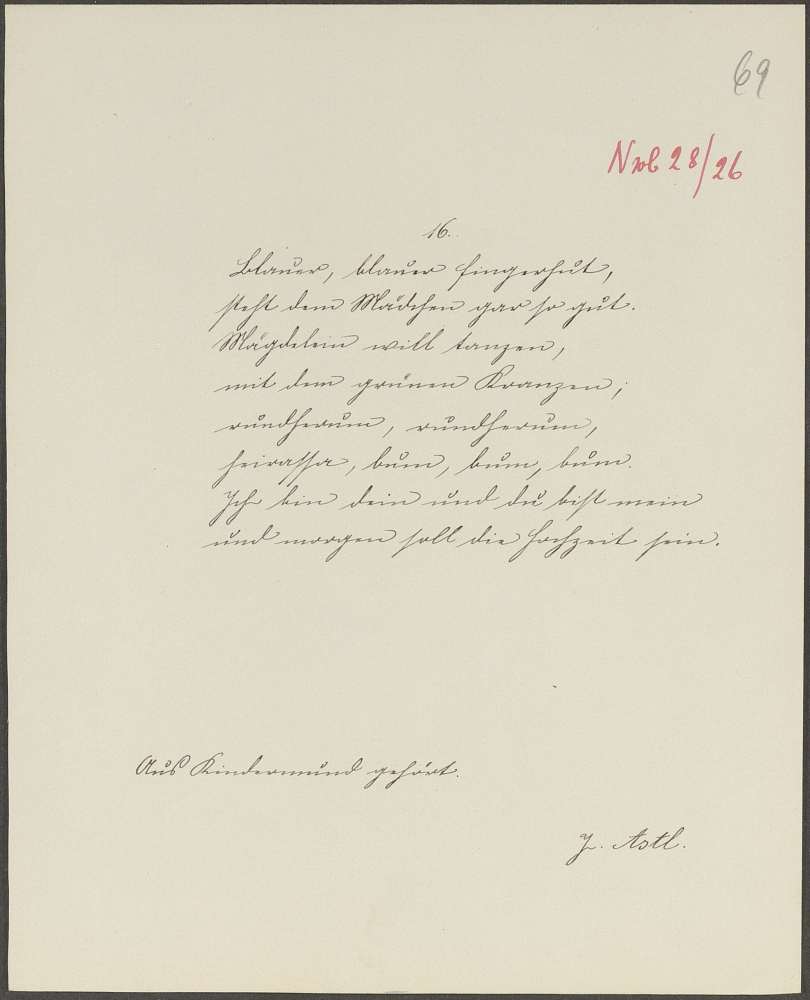 69
Nrob 28/26
16.
Blauer, blauer Fingerhut,
steht dem Mädchen gar so gut.
Mägdelein will tanzen,
mit dem grünen Kranzen;
rundherum, rundherum,
heirassa, bum, bum, bum.
Ich bin dein und du bist mein
und morgen soll die Hochzeit sein.
Aus Kindermund gehört.
J. Astl.